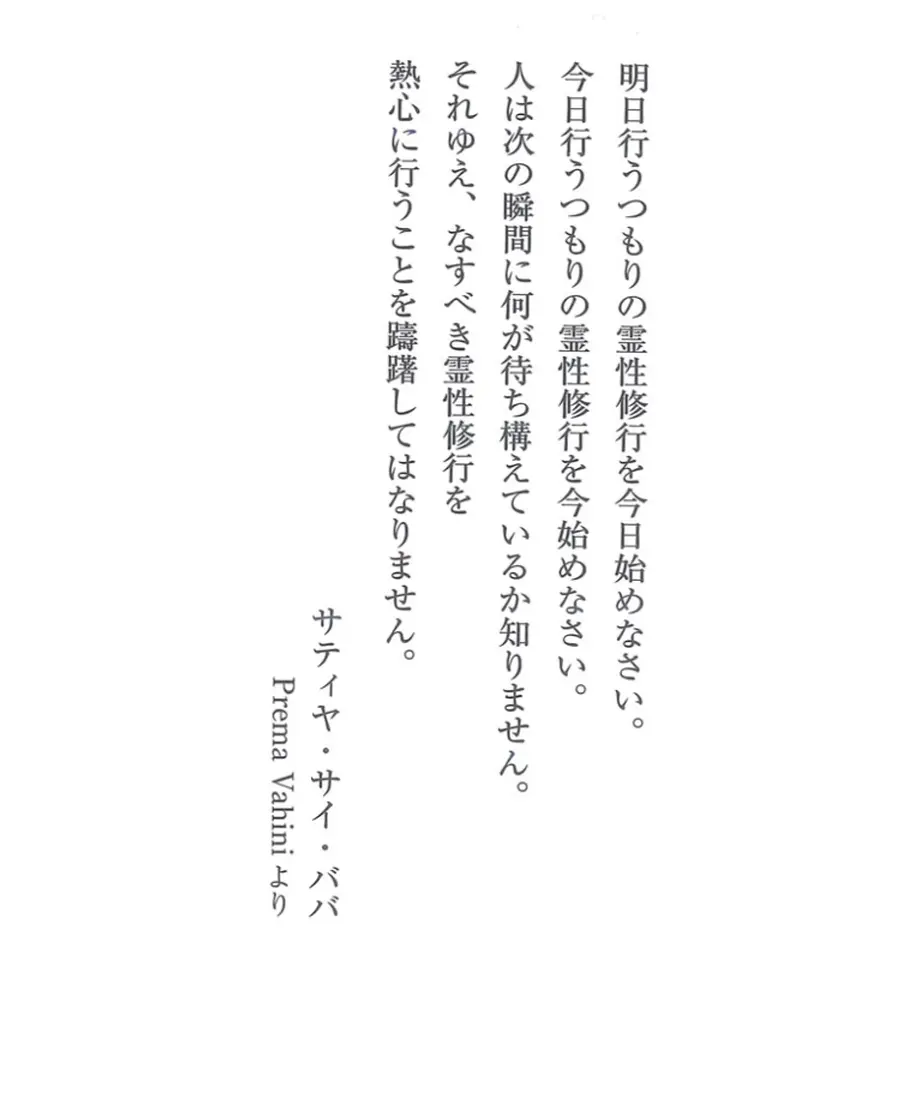 明日行うつもりの霊性修行を今日始めなさい。
今日行うつもりの霊性修行を今始めなさい。
人は次の瞬間に何が待ち構えているか知りません。
それゆえ、なすべき霊性修行を
熱心に行うことを躊躇してはなりません。
サティヤ・サイ・ババ
Prema Vahini より